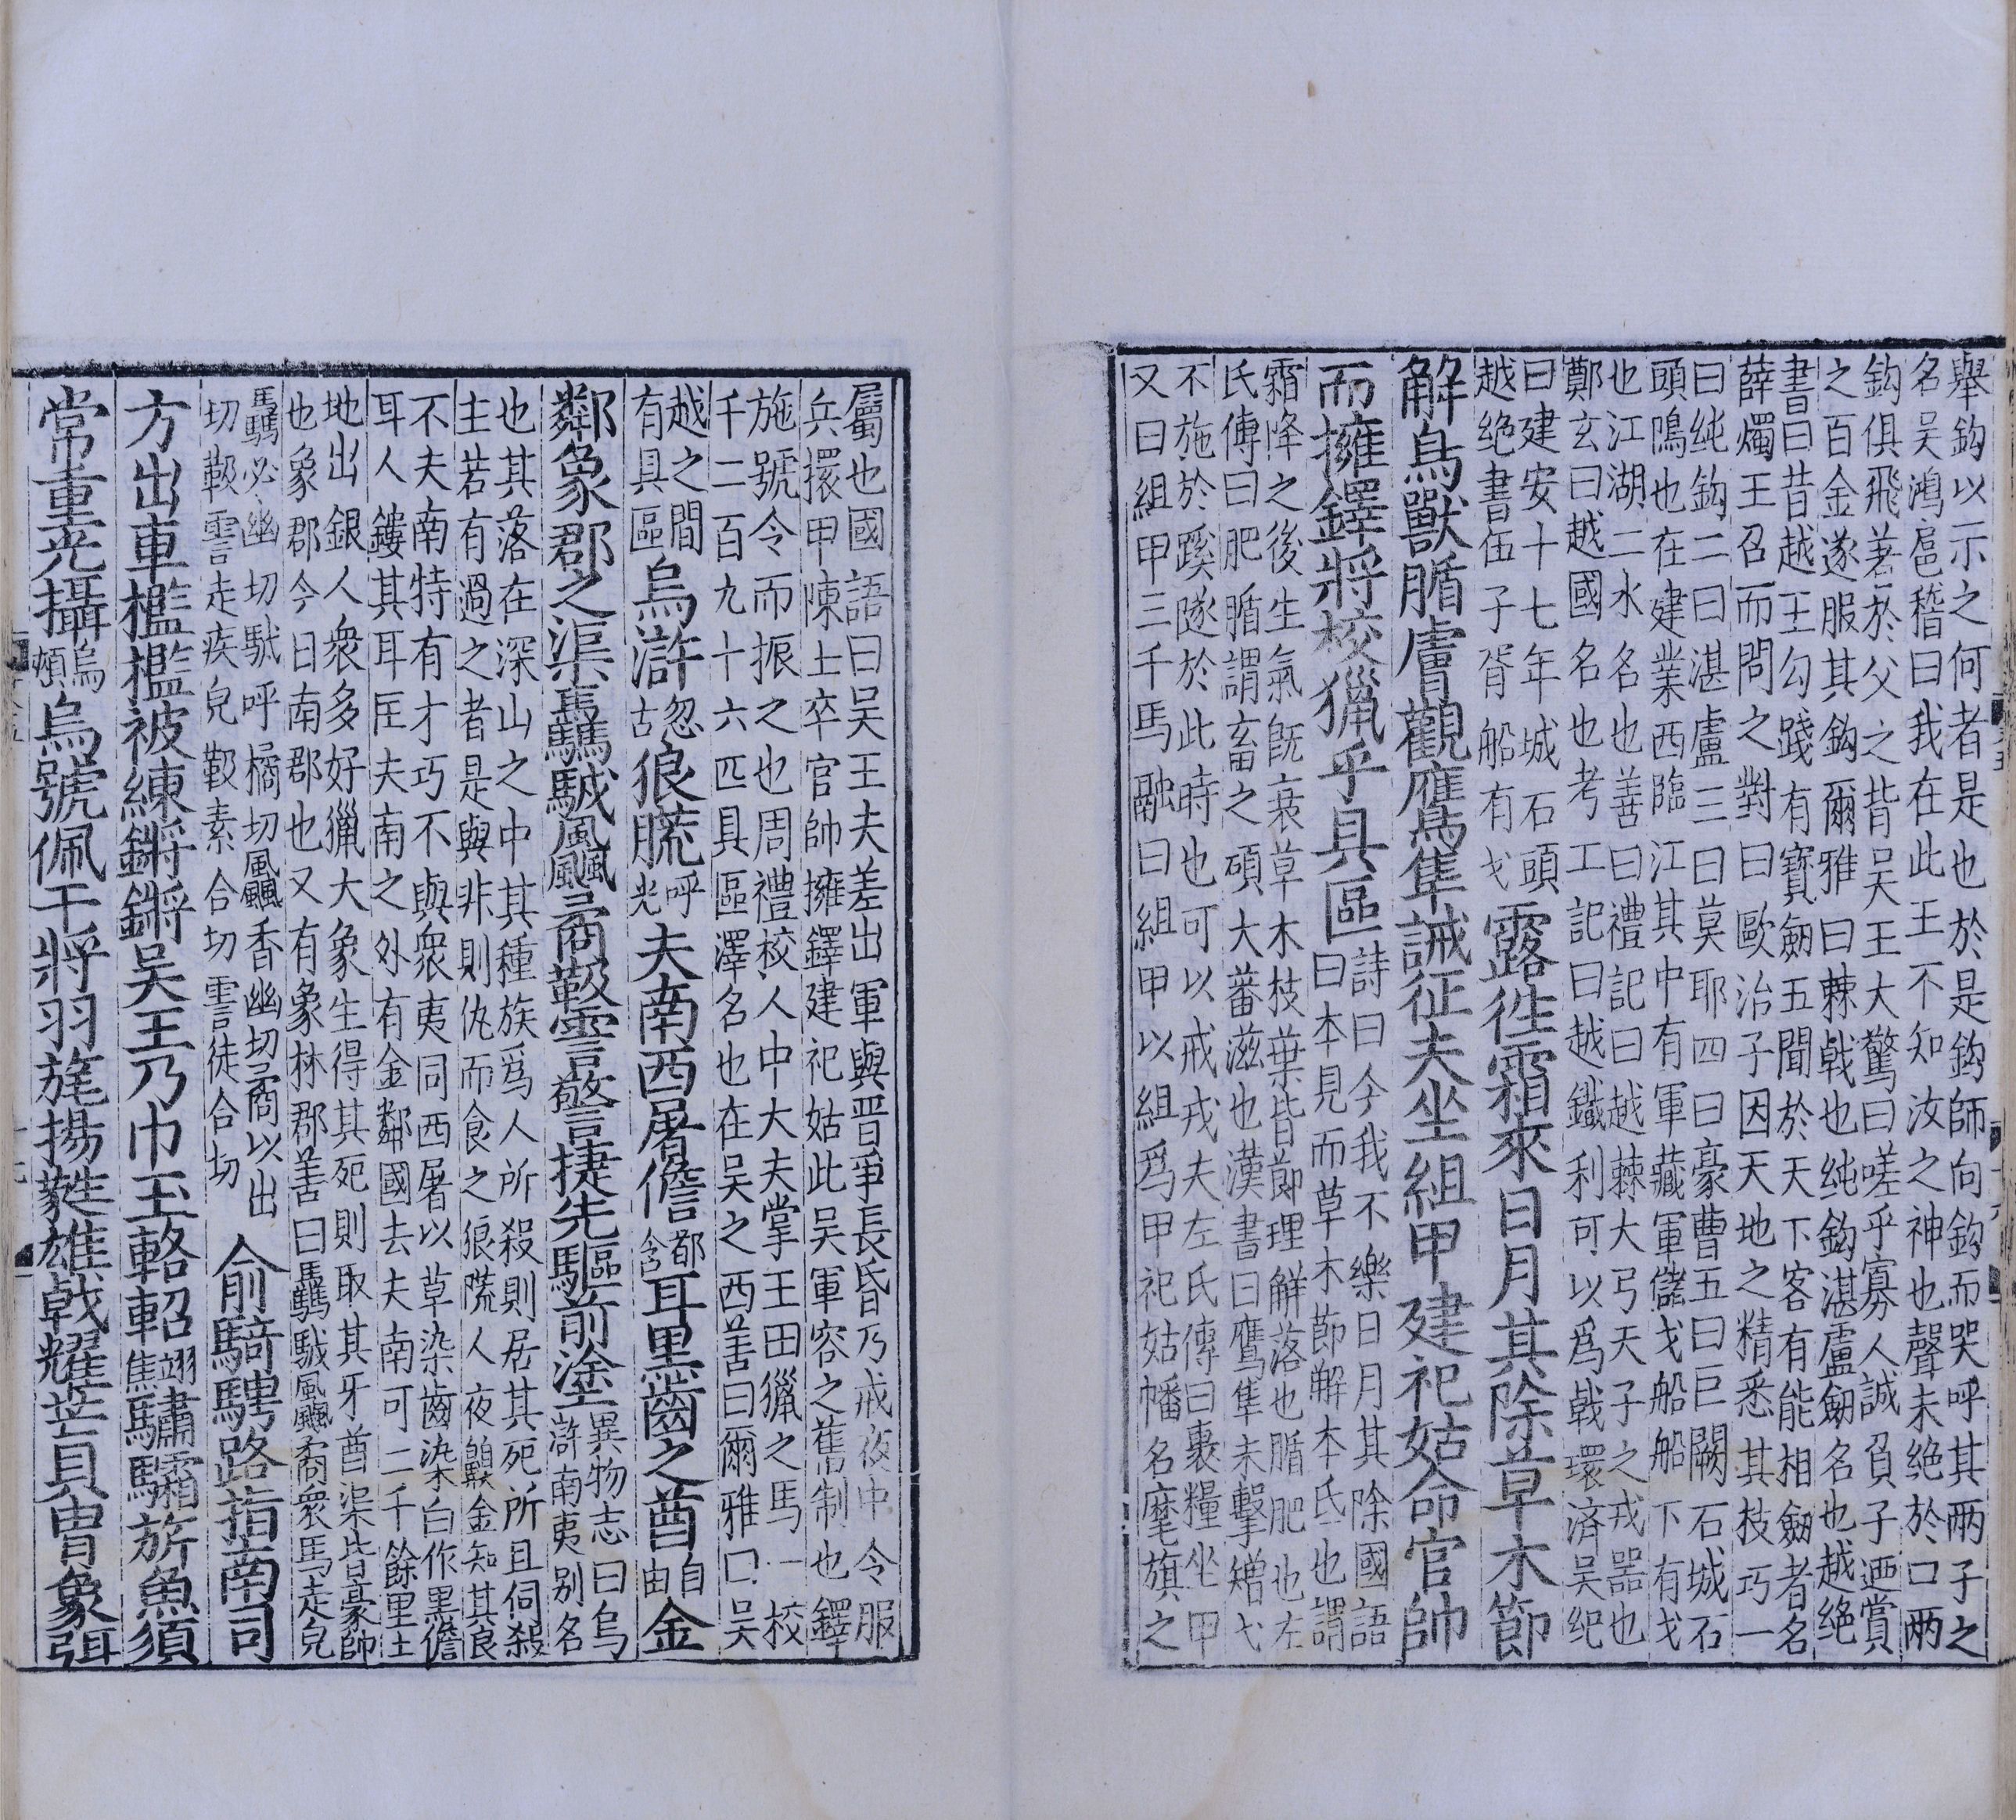 舉鈎以示之何者是也於是鈎師向鈎而哭呼其兩子之
名吴鴻扈稽曰我在此王不知汝之神也聲未絶於口兩
鈎俱飛著於父之背吴王大驚曰嗟乎寡人誠負子迺賞
之百金遂服其鈎爾雅曰棘戟也純鈎湛盧劒名也越絶
書曰昔越王勾踐有寳劒五聞於天下客有能相劒者名
薛燭王召而問之對曰歐冶子因天地之精悉其枝巧一
曰純鈎二曰湛盧三曰莫耶四曰豪曹五曰巨闕石城石
頭鳴也在建業西臨江其中有軍藏軍儲戈船船下有戈
也江湖二水名也善曰禮記曰越棘大弓天子之戎器也
鄭玄曰越國名也考工記曰越鐵利可以爲戟環濟吴紀
曰建安十七年城石頭
越絶書伍子胥船有戈
露徃霜來日月其除草木節
解鳥獸腯膚觀鷹隼誡征夫坐組甲建祀姑命官帥
而擁鐸將校獵乎具區
詩曰今我不樂日月其除國語
曰本見而草木節解本氐也謂
霜降之後生氣旣衰草木枝葉皆節理解落也腯肥也左
氏傳曰肥腯謂畜之碩大蕃滋也漢書曰鷹隼未擊矰弋
不施於蹊隧於此時也可以戒戎夫左氏傳曰裹糧坐甲
又曰組甲三千馬融曰組甲以組爲甲祀姑幡名麾旗之
屬也國語曰吴王夫差出軍與晋爭長昏乃戒夜中令服
兵擐甲陳士卒官帥擁鐸建祀姑此吴軍容之舊制也鐸
施號令而振之也周禮校人中大夫掌王田獵之馬一校
千二百九十六匹具區澤名也在吴之西善曰爾雅曰吴
越之間
有具區
烏滸
忽
古
狼䏆
呼
光
夫南西屠儋
都
含
耳黑齒之酋
自
由
金
鄰象郡之渠驫駥飍矞靸霅警捷先驅前塗
異物志曰烏
滸南夷别名
也其落在深山之中其種族爲人所殺則居其死所且伺殺
主若有過之者是與非則仇而食之狼䏆人夜齅金知其良
不夫南特有才巧不與衆夷同西屠以草染齒染白作黑儋
耳人鏤其耳匡夫南之外有金鄰國去夫南可二千餘里土
地出銀人衆多好獵大象生得其死則取其牙酋渠皆豪帥
也象郡今日南郡也又有象林郡善曰驫駥飍矞衆馬走皃
驫必幽切駥呼橘切飍香幽切矞以出
切靸霅走疾皃靸素合切霅徒合切
俞騎騁路指南司
方出車檻檻被練鏘鏘吴王乃巾玉輅軺
焦
翊
驌驦旂魚須
常重光攝
烏
頰
烏號佩干將羽旄揚蕤雄戟耀芒貝胄象弭